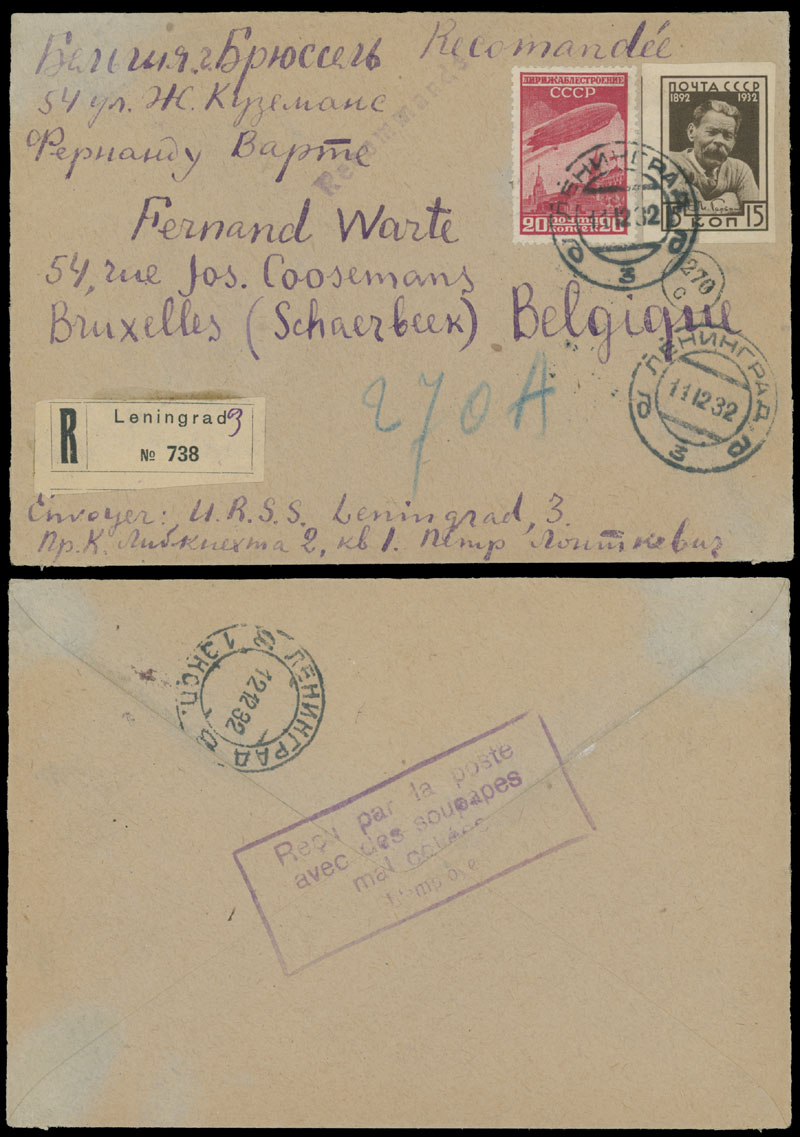 Бельгия. г. Брюссель Recomandée
54 ул. Ж. Куземанс
Фернанду Варте
Recommandé
Fernand Warte
54, rue Jos. Coosemans
Bruxelles (Schaerbeek) Belgique
ДИРИЖАБЛЕСТРОЕНИЕ
СССР
20 ПОЧТА 20
КОПЕЕК
ПОЧТА СССР
1892 1932
15 КОП 15
ЛЕНИНГРАД
11 12 32
Ф 3 Ф
270
С
270A
ЛЕНИНГРАД
11 12 32
Ф 3 Ф
R Leningrad 3
№ 738
Envoyer: U.R.S.S. Leningrad, 3.
Пр. К. Либкнехта 2, кв 1. Пётр Лоиткевич
ЛЕНИНГРАД
1 ЭКСП.
12 12 32
Reçu par la poste
avec des soupapes
mal